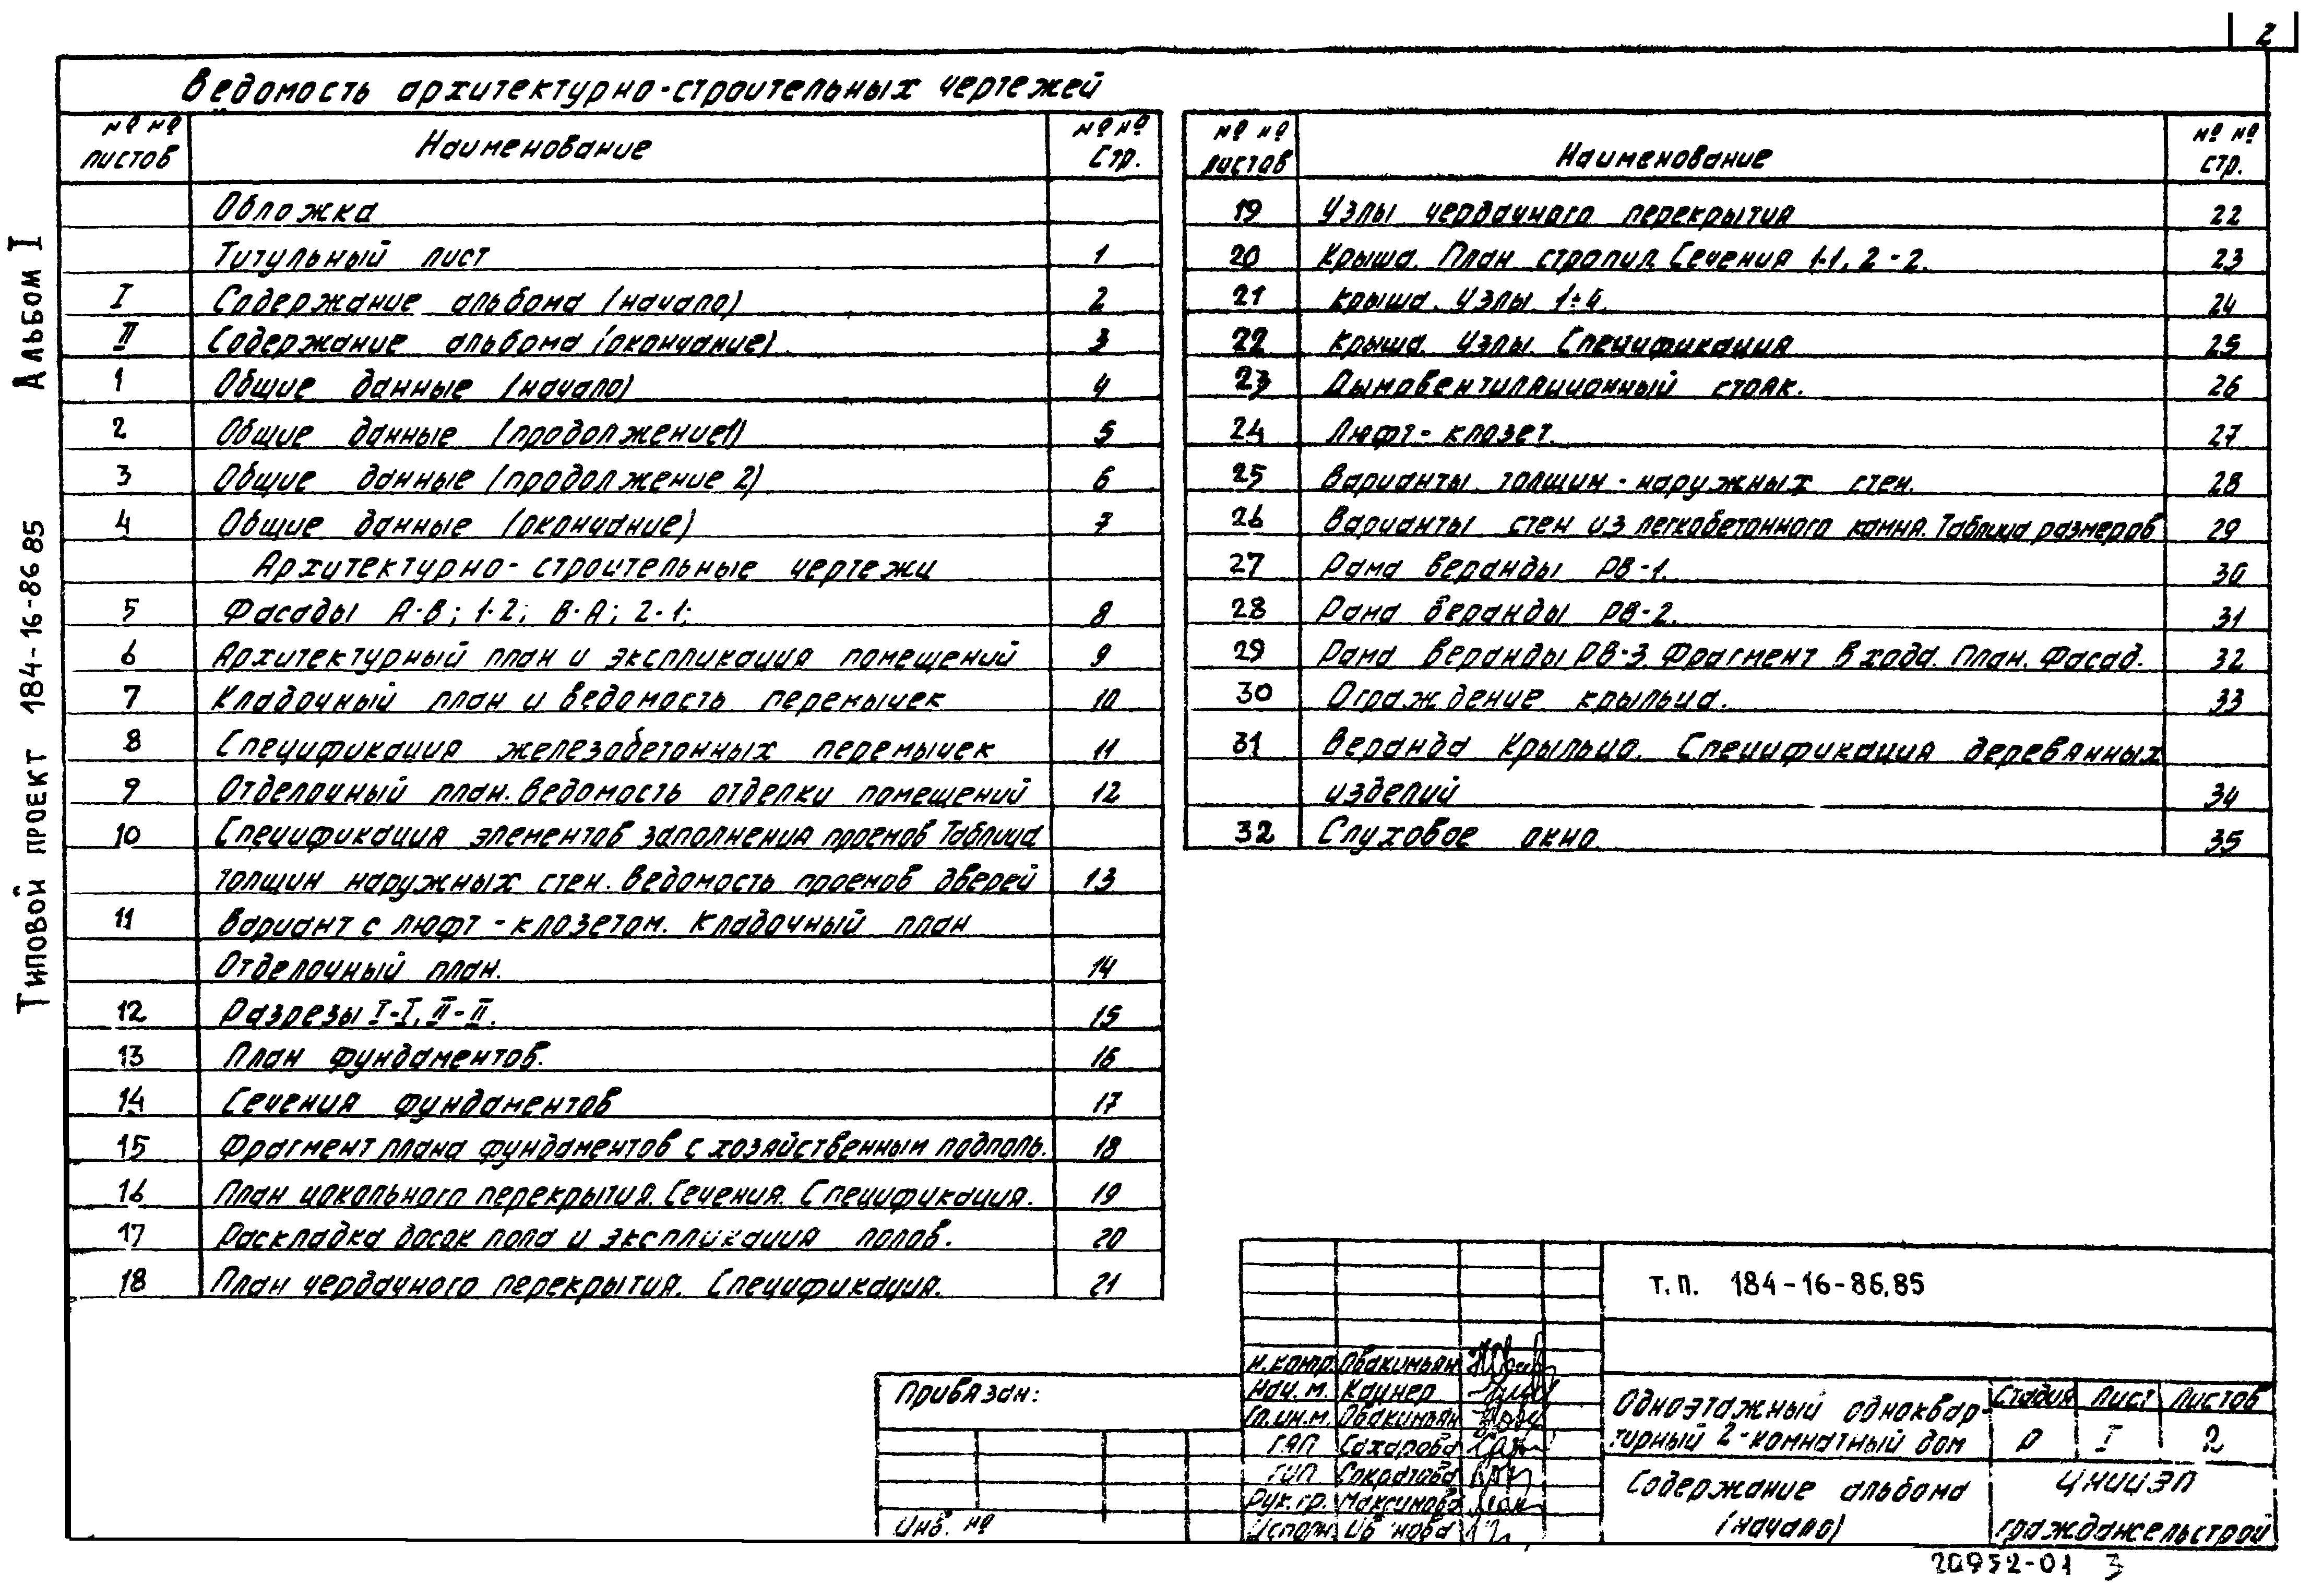 2
Ведомость архитектурно-строительных чертежей
№ № листов Наименование № № Стр.
Обложка
Титульный лист 1
I Содержание альбома (начало) 2
II Содержание альбома (окончание). 3
1 Общие данные (начало) 4
2 Общие данные (продолжение1) 5
3 Общие данные (продолжение 2) 6
4 Общие данные (окончание) 7
Архитектурно-строительные чертежи
5 Фасады А-В; 1-2; В-А; 2-1; 8
6 Архитектурный план и экспликация помещений 9
7 Кладочный план и ведомость перемычек 10
8 Спецификация железобетонных перемычек 11
9 Отделочный план. Ведомость отделки помещений 12
10 Спецификация элементов заполнения проемов Таблица
толщин наружных стен. Ведомость проемов дверей 13
11 Вариант с люфт-клозетом. Кладочный план
Отделочный план. 14
12 Разрезы I-I, II-II. 15
13 План фундаментов. 16
14 Сечения фундаментов 17
15 Фрагмент плана фундаментов с хозяйственным подполь. 18
16 План цокольного перекрытия. Сечения. Спецификация. 19
17 Раскладка досок пола и экспликация полов. 20
18 План чердачного перекрытия. Спецификация. 21
№ № листов Наименование № № стр.
19 Узлы чердачного перекрытия 22
20 Крыша. План стропил. Сечения 1-1, 2-2. 23
21 Крыша. Узлы 1÷4. 24
22 Крыша. Узлы. Спецификация 25
23 Дымовентиляционный стояк. 26
24 Люфт-клозет. 27
25 Варианты толщин-наружных стен. 28
26 Варианты стен из легкобетонного камня. Таблица размеров 29
27 Рама веранды РВ-1. 30
28 Рама веранды РВ-2. 31
29 Рама веранды РВ-3 Фрагмент входа. План. Фасад. 32
30 Ограждение крыльца. 33
31 Веранда Крыльцо. Спецификация деревянных
изделий 34
32 Слуховое окно. 35
Альбом I
Типовой проект 184-16-86 85
Привязан:
Инв. №
т.п. 184-16-86.85
Н.контр. Овакимьян
Нач.м. Каунер
Гл.ин.м. Овакимьян
ГАП Сахарова
ГИП
Рук.гр. Максимова
Исполн.
Одноэтажный одноквар-
тирный 2-комнатный дом
Стадия Лист Листов
Р I 2
Содержание альбома
(начало)
ЦНИИЭП
граждансельстрой
20952-01 3